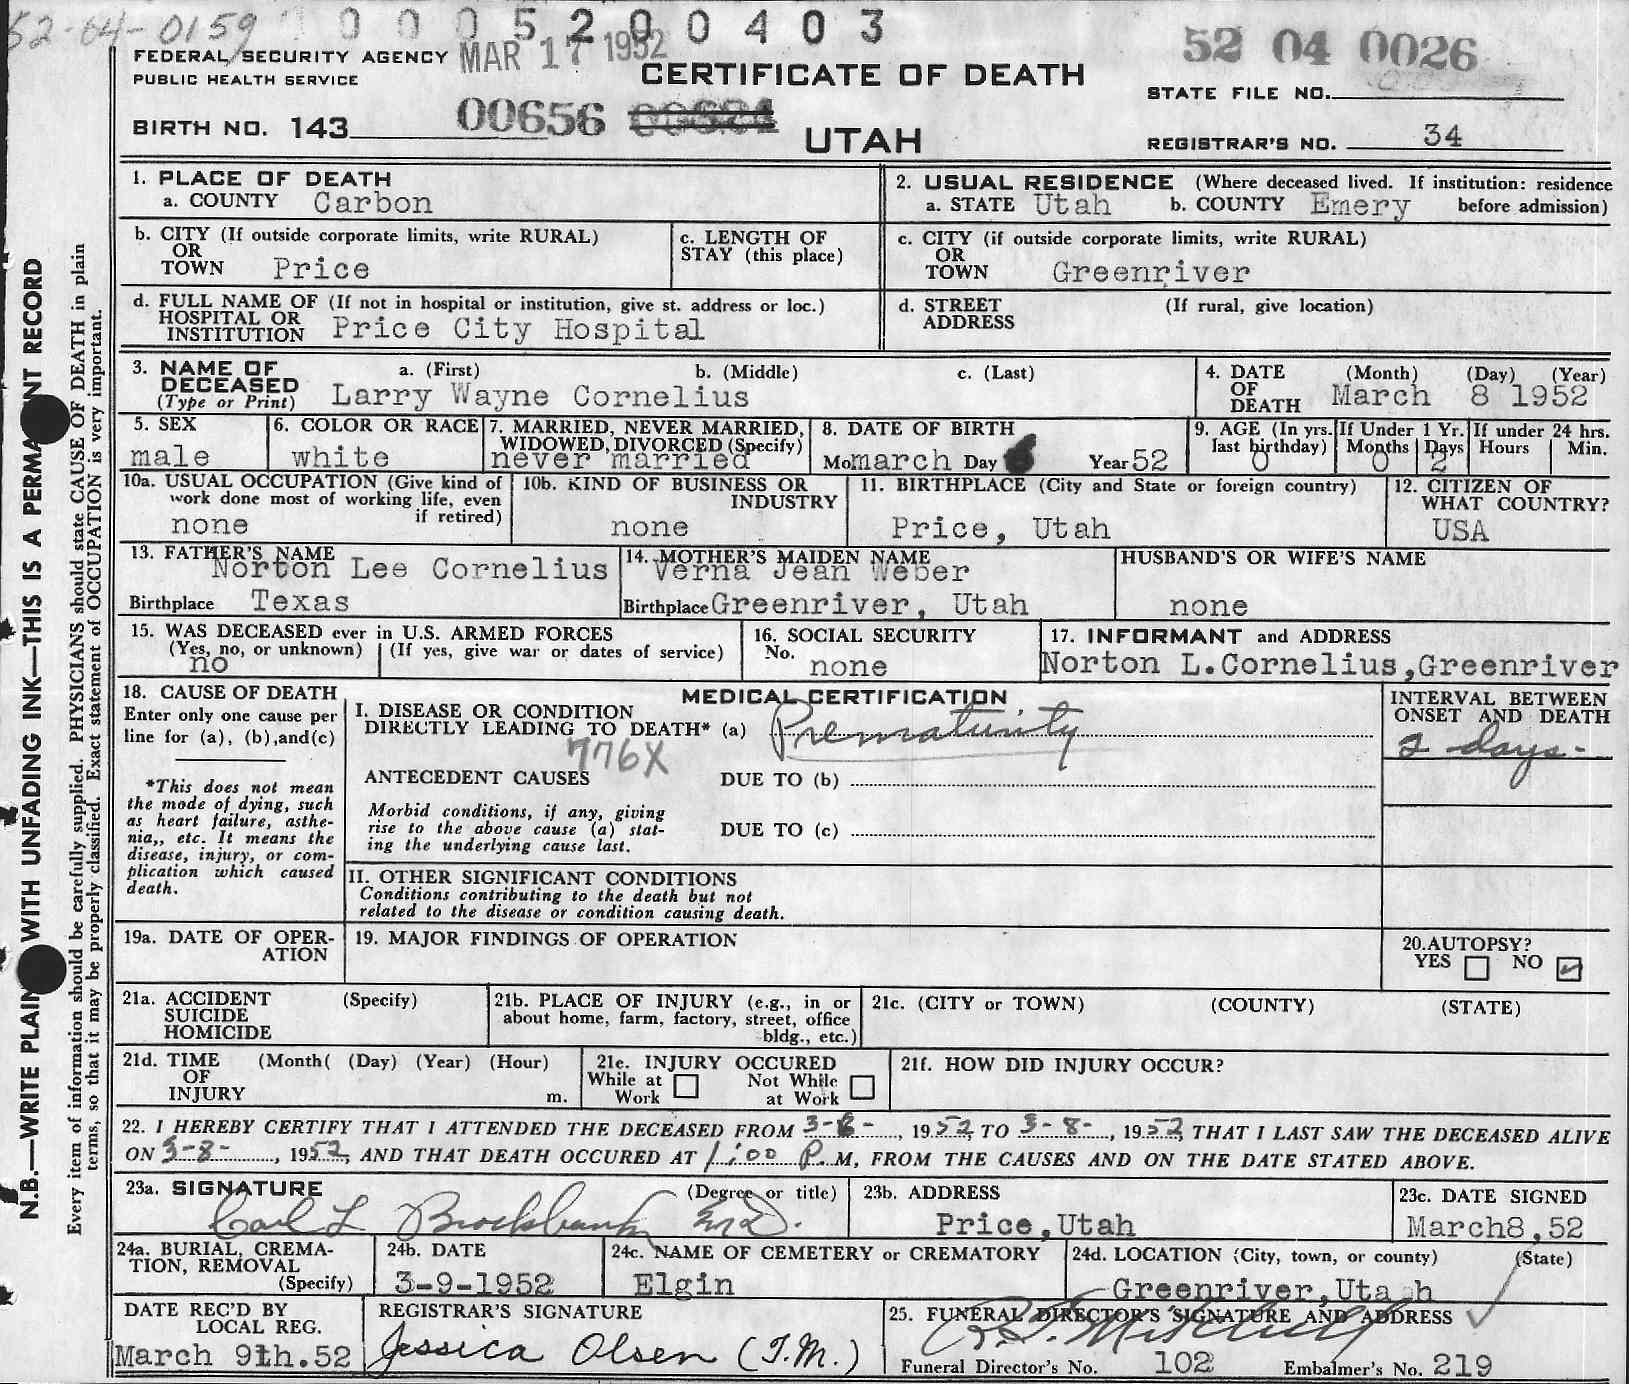 52-64-0159 0 0 0 5 2 0 0 4 0 3
FEDERAL SECURITY AGENCY MAR 17 1952 52 04 0026
PUBLIC HEALTH SERVICE CERTIFICATE OF DEATH STATE FILE NO.
BIRTH NO. 143 00656 UTAH REGISTRAR'S NO. 34
1. PLACE OF DEATH
a. COUNTY Carbon
2. USUAL RESIDENCE (Where deceased lived. If institution: residence
a. STATE Utah b. COUNTY Emery before admission)
b. CITY (If outside corporate limits, write RURAL)
OR
TOWN Price
c. LENGTH OF
STAY (this place)
c. CITY (if outside corporate limits, write RURAL)
OR
TOWN Greenriver
d. FULL NAME OF (If not in hospital or institution, give st. address or loc.)
HOSPITAL OR
INSTITUTION Price City Hospital
d. STREET (If rural, give location)
ADDRESS
3. NAME OF a. (First) b. (Middle) c. (Last)
DECEASED
(Type or Print) Larry Wayne Cornelius
4. DATE (Month) (Day) (Year)
OF
DEATH March 8 1952
5. SEX
male
6. COLOR OR RACE
white
7. MARRIED, NEVER MARRIED,
WIDOWED, DIVORCED (Specify)
never married
8. DATE OF BIRTH
Mo march Day Year 52
9. AGE (In yrs. last birthday) 0
If Under 1 Yr. Months 0 Days 2
If under 24 hrs. Hours Min.
10a. USUAL OCCUPATION (Give kind of
work done most of working life, even
if retired)
none
10b. KIND OF BUSINESS OR
INDUSTRY
none
11. BIRTHPLACE (City and State or foreign country)
Price, Utah
12. CITIZEN OF
WHAT COUNTRY?
USA
13. FATHER'S NAME
Norton Lee Cornelius
Birthplace Texas
14. MOTHER'S MAIDEN NAME
Verna Jean Weber
Birthplace Greenriver, Utah
HUSBAND'S OR WIFE'S NAME
none
15. WAS DECEASED ever in U.S. ARMED FORCES
(Yes, no, or unknown) (If yes, give war or dates of service)
no
16. SOCIAL SECURITY
No. none
17. INFORMANT and ADDRESS
Norton L.Cornelius,Greenriver
18. CAUSE OF DEATH
Enter only one cause per
line for (a), (b),and(c)
*This does not mean
the mode of dying, such
as heart failure, asthe-
nia,, etc. It means the
disease, injury, or com-
plication which caused
death.
MEDICAL CERTIFICATION
I. DISEASE OR CONDITION
DIRECTLY LEADING TO DEATH* (a) Prematurity
776X
ANTECEDENT CAUSES DUE TO (b)
Morbid conditions, if any, giving
rise to the above cause (a) stat-
ing the underlying cause last.
DUE TO (c)
INTERVAL BETWEEN
ONSET AND DEATH
2 days-
II. OTHER SIGNIFICANT CONDITIONS
Conditions contributing to the death but not
related to the disease or condition causing death.
19a. DATE OF OPER-
ATION
19. MAJOR FINDINGS OF OPERATION
20.AUTOPSY?
YES NO
21a. ACCIDENT (Specify)
SUICIDE
HOMICIDE
21b. PLACE OF INJURY (e.g., in or
about home, farm, factory, street, office
bldg., etc.)
21c. (CITY or TOWN) (COUNTY) (STATE)
21d. TIME (Month( (Day) (Year) (Hour)
OF
INJURY m.
21e. INJURY OCCURED
While at Work Not While at Work
21f. HOW DID INJURY OCCUR?
22. I HEREBY CERTIFY THAT I ATTENDED THE DECEASED FROM 3-6-, 1952, TO 3-8-, 1952, THAT I LAST SAW THE DECEASED ALIVE
ON 3-8-, 1952, AND THAT DEATH OCCURED AT 1:00 P.M, FROM THE CAUSES AND ON THE DATE STATED ABOVE.
23a. SIGNATURE (Degree or title)
Carl L Brockbank M.D.
23b. ADDRESS
Price,Utah
23c. DATE SIGNED
March8,52
24a. BURIAL, CREMA-
TION, REMOVAL
(Specify)
24b. DATE
3-9-1952
24c. NAME OF CEMETERY or CREMATORY
Elgin
24d. LOCATION (City, town, or county) (State)
Greenriver,Utah
DATE REC'D BY
LOCAL REG.
March 9th.52
REGISTRAR'S SIGNATURE
Jessica Olsen (T.M.)
25. FUNERAL DIRECTOR'S SIGNATURE AND ADDRESS
Mitchell
Funeral Director's No. 102 Embalmer's No. 219
N.B.—WRITE PLAIN WITH UNFADING INK—THIS IS A PERMA NT RECORD
Every item of information should be carefully supplied. PHYSICIANS should state CAUSE OF DEATH in plain
terms, so that it may be properly classified. Exact statement of OCCUPATION is very important.